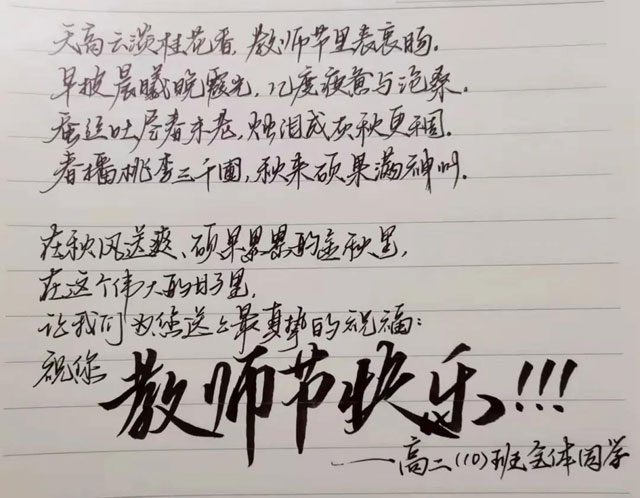 天高云淡桂花香,教师节里表衷肠.
早披晨曦晚霞光,几度疲惫与沧桑.
蚕丝吐尽春未老,烛泪成灰秋更稠.
春播桃李三千圃,秋来硕果满神州.
在秋风送爽、硕果累累的金秋里,
在这个伟大的日子里,
让我们为您送上最真挚的祝福:
祝您 教师节快乐!!!
——高二(10)班全体同学